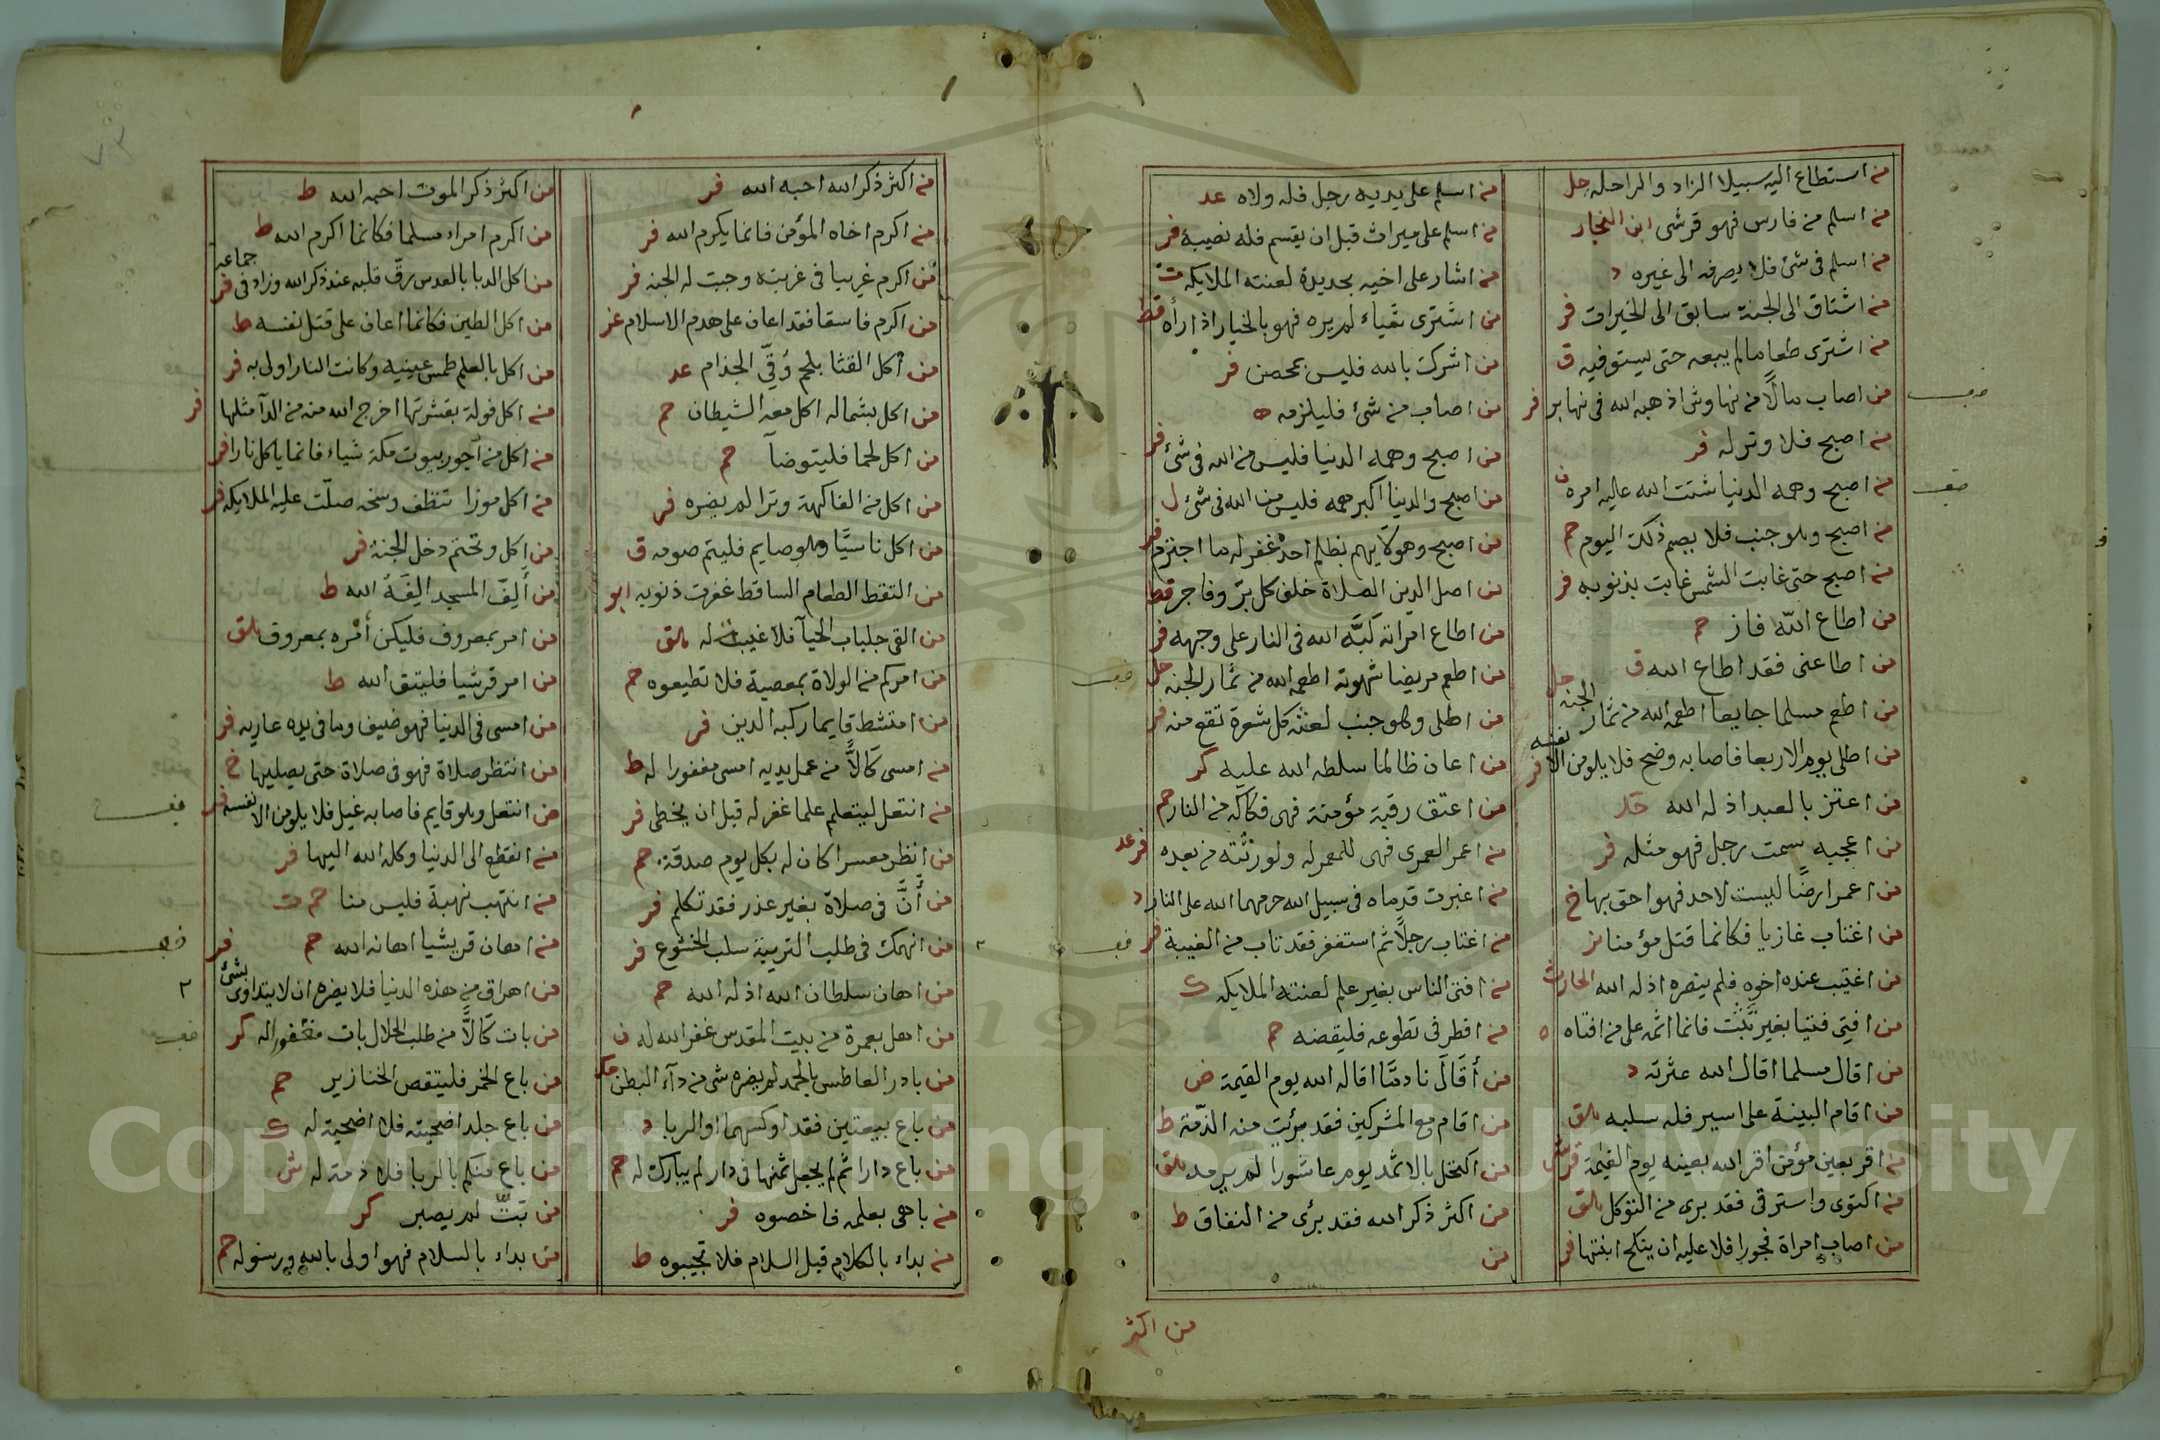 من استطاع اليه سبيلا الزاد والراحله حل
من اسلم من فارس فهو قرشى ابن النجار
من اسلم فى شئ فلا يصرفه الى غيره د
من اشتاق الى الجنة سابق الى الخيرات فر
من اشترى طعاما لم يبعه حتى يستوفيه ق
من اصاب مالاً من نهاوش اذهبه الله فى نهابر فر
من اصبح فلا وتر له فر
من اصبح وهمه الدنيا شتت الله عليه امره ن
من اصبح وهو جنب فلا يصم ذلك اليوم حم
من اصبح حتى غابت الشمس غابت بذنوبه فر
من اطاع الله فاز حم
من اطاعنى فقد اطاع الله ق
من اطعم مسلما جايعا اطعمه الله من ثمار الجنه حل
من اطلى يوم الاربعا فاصابه وضح فلا يلومن الا نفسه فر
من اعتز بالعبد اذله الله
من اعجبه سمت رجل فهو مثله فر
من اعمر ارضًا ليست لاحد فهو احق بها خ
من اغتاب غازيا فكانما قتل مؤمنا
من اغتيب عنده اخوه فلم ينصره اذله الله الحارث
من افتى فتيا بغير تثبت فانما اثمه على من افتاه ه
من اقال مسلما اقال الله عثرته د
من اقام البينة على اسير فله سلبه هق
من اقر بعين مؤمن اقر الله بعينه يوم القيمة
من اكتوى واسترقى فقد برى من التوكل هق
من اصاب امراة فجورا فلا عليه ان ينكح ابنتها فر
من اسلم على يديه رجل فله ولاه عد
من اسلم على ميراث قبل ان يقسم فله نصيبه فر
من اشار على اخيه بحديدة لعنته الملايكه ت
من اشترى شياء لم يره فهو بالخيار اذا رأه قط
من اشرك بالله فليس بمحصن فر
من اصاب من شئ فليلزمه ه
من اصبح وهمه الدنيا فليس من الله فى شئ فر
من اصبح والدنيا اكبر همه فليس من الله فى شئ ل
من اصبح وهو لا يهم بظلم احد غفر له ما اجترم فر
من اصل الدين الصلاة خلف كل برّ وفاجر قط
من اطاع امراته كبّه الله فى النار على وجهه فر
من اطعم مريضا شهوته اطعمه الله من ثمار الجنه حل
من اطلى وهو جنب لعنته كل شعرة تقع منه فر
من اعان ظالما سلطه الله عليه كر
من اعتق رقبة مؤمنة فهى فكاكه من النار حم
من اعمر العمرى فهى للمعمر له ولورثته من بعده فر عد
من اغبرت قدماه فى سبيل الله حرمهما الله على النار د
من اغتاب رجلاً ثم استغفر فقد تاب من الغيبة فر
من افتى الناس بغير علم لعنته الملايكه ك
من افطر فى تطوعه فليقضه حم
من أقال نادمًا اقاله الله يوم القيمة ض
من اقام مع المشركين فقد برئت منه الذمّة ط
من اكتحل بالاثمد يوم عاشورا لم يرمد هق
من اكثر ذكر الله فقد برئ من النفاق ط
من
من اكثر
من اكثر ذكر الله احبه الله فر
من اكرم اخاه المؤمن فانما يكرم الله فر
من اكرم غريبا فى غربته وجبت له الجنه فر
من اكرم فاسقا فقد اعان على هدم الاسلام
من أكل القثا بلحم وُقّى الجذام عد
من اكل بشماله اكل معه الشيطان حم
من اكل لحما فليتوضآ حم
من اكل من الفاكهة وترا لم يضره فر
من اكل ناسيًا وهو صايم فليتم صومه ق
من التقط الطعام الساقط غفرت ذنوبه ابو
من القى جلباب الحيآ فلا غيبة له هق
من امركم من الولاة بمعصية فلا تطيعوه حم
من امتشط قايما ركبه الدين فر
من امسى كالاًّ من عمل يديه امسى مغفورا له ط
من انتعل ليتعلم علما غفر له قبل ان يخطى فر
من انظر معسرا كان له بكل يوم صدقة حم
من أنَّ فى صلاة بغير عذر فقد تكلم فر
من انهمك فى طلب التربية سلب الخشوع فر
من اهان سلطان الله اذله الله حم
من اهل بعمرة من بيت المقدس غفر الله له ن
من بادر العاطس بالحمد لم يضره شى من دآء البطن
من باع بيعتين فقد اوكسهما او الربا د
من باع دارا ثم لم يجعل ثمنها فى دار لم يبارك له حم
من باهى بعلمه فاخصوه فر
من بداء بالكلام قبل السلام فلا تجيبوه ط
من اكثر ذكر الموت احبه الله ط
من اكرم امراء مسلما فكانما اكرم الله ط
من اكل الدبا بالعدس رقّ قلبه عند ذكر الله وزاد فى جماعه فر
من اكل الطين فكانما اعان على قتل نفسه ط
من اكل بالعلم طمس عينيه وكانت النار اولى به فر
من اكل فولة بقشرتها اخرج الله منه من الدآ مثلها فر
من اكل من اجور بيوت مكة شياء فانما ياكل نارا فر
من اكل موزا تنظف وسخه صلّت عليه الملايكه فر
من اكل وتختم دخل الجنة فر
من أَلِفَ المسجد الِفَهُ الله ط
من امر بمعروف فليكن أمره بمعروف هق
من امر قرشيا فليتق الله ط
من امسى فى الدنيا فهو ضيف وما فى يده عاريه فر
من انتظر صلاة فهو فى صلاة حتى يصليها خ
من انتعل وهو قايم فاصابه غيل فلا يلومن الا نفسه فر
من انقطع الى الدنيا وكله الله اليها فر
من انتهب نهبة فليس منا حم ت
من اهان قريشيا اهانه الله حم
من اهراق من هذه الدنيا فلا يضره ان لا يتداوى بشئ فر
من بات كالاًّ من طلب الحلال بات مغفورا له كر
من باع الخمر فليتقص الخنازير حم
من باع جلد اضحيته فلا اضحية له ك
من باع منكم بالربا فلا ذمة له ش
من بتّ لم يصبر كر
من بداء بالسلام فهو اولى بالله ورسوله حم
٧٣
Copyright © King Saud University
1957